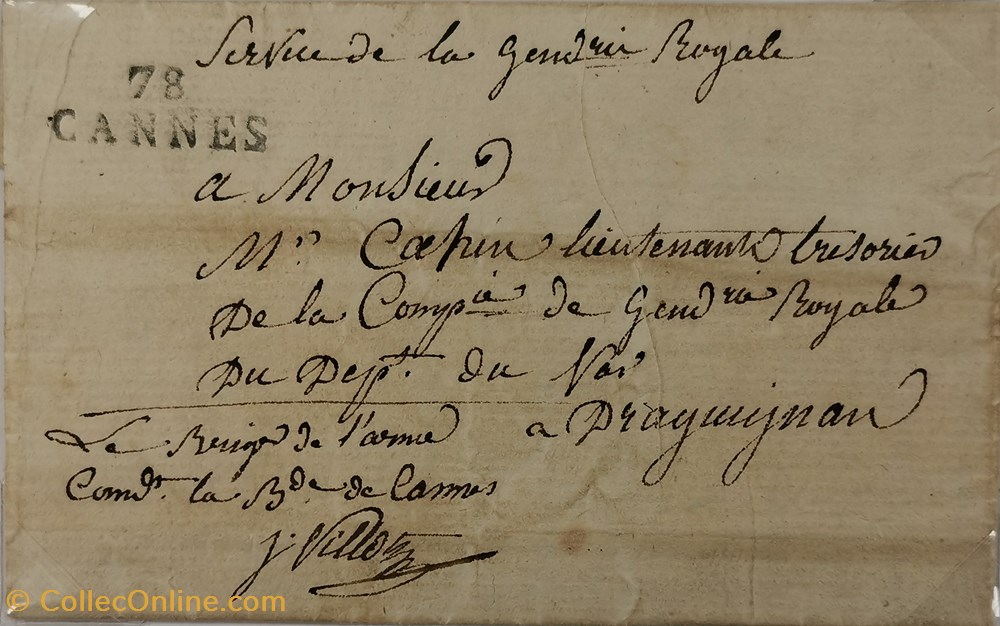 Service de la Gendrie Royale
78
CANNES
a Monsieur
Mr. Capin lieutenant tresorier
De la Compie de Gendrie Royale
Du Dept. du Var
a Draguignan
Le de l'arme
Comdt. la Bde. de Cannes
© CollecOnline.com